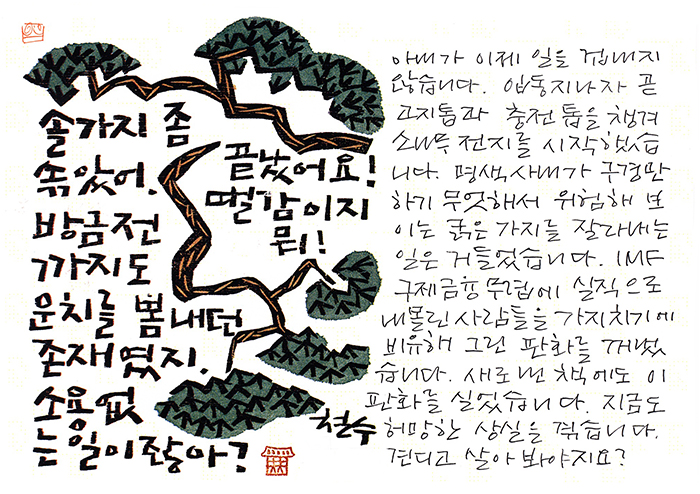 솔가지 좀
솎았어.
방금전
까지도
운치를 봄내던
존재였지.
소용없
는일이잖아?
끝났어요!
땔감이지
뭐!
철수
아내가 이제 일을 겁내지
않습니다. 입동지나자 곧
고지톱과 충전톱을 챙겨
소나무 전지를 시작했습
니다. 평생, 사내가 구경만
하기 무엇해서 위험해 보
이는 굵은 가지를 잘라내는
일은 거들었습니다. IMF
구제금융무렵에 실직으로
내몰린 사람들을 가지치기에
비유해 그런 판화를 꺼냈
습니다. 새로 낸 책에도 이
판화를 실었습니다. 지금도
허망한 상실을 겪습니다.
견디고 살아 봐야지요?